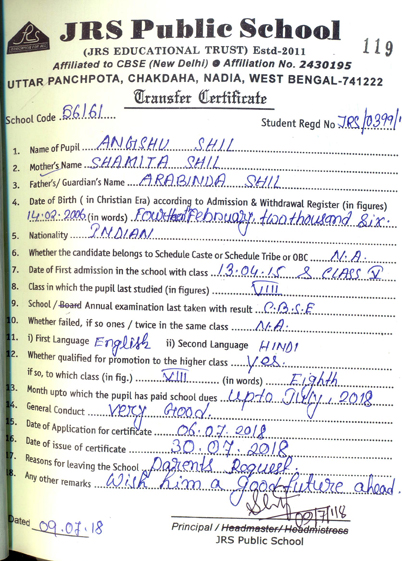 JRS Public School
(JRS EDUCATIONAL TRUST) Estd-2011
119
Affiliated to CBSE (New Delhi) Affiliation No. 2430195
UTTAR PANCHPOTA, CHAKDAHA, NADIA, WEST BENGAL-741222
Transfer Certificate
School Code 56161 Student Regd No JRS/0399/
1. Name of Pupil ANGISHU SHIL
2. Mother's Name SHAMITA SHIL
3. Father's/ Guardian's Name ARABINDA SHIL
4. Date of Birth ( in Christian Era) according to Admission & Withdrawal Register (in figures)
14.02.2006 (in words) February two thousand Six.
5. Nationality INDIAN
6. Whether the candidate belongs to Schedule Caste or Schedule Tribe or OBC N.A.
7. Date of First admission in the school with class 13.04.15 & CLASS V
8. Class in which the pupil last studied (in figures) VIII
9. School / Board Annual examination last taken with result C.B.S.E
10. Whether failed, if so ones / twice in the same class N.A.
11. i) First Language English ii) Second Language HINDI
12. Whether qualified for promotion to the higher class Yes.
if so, to which class (in fig.) VIII (in words) Eighth
13. Month upto which the pupil has paid school dues Upto July, 2018
14. General Conduct Very Good.
15. Date of Application for certificate 06.07.2018
16. Date of issue of certificate 30.07.2018
17. Reasons for leaving the School Parents Request.
18. Any other remarks Wish him a good future ahead.
09/7/118
Dated 09.07.18
Principal / Headmaster/ Headmistress
JRS Public School